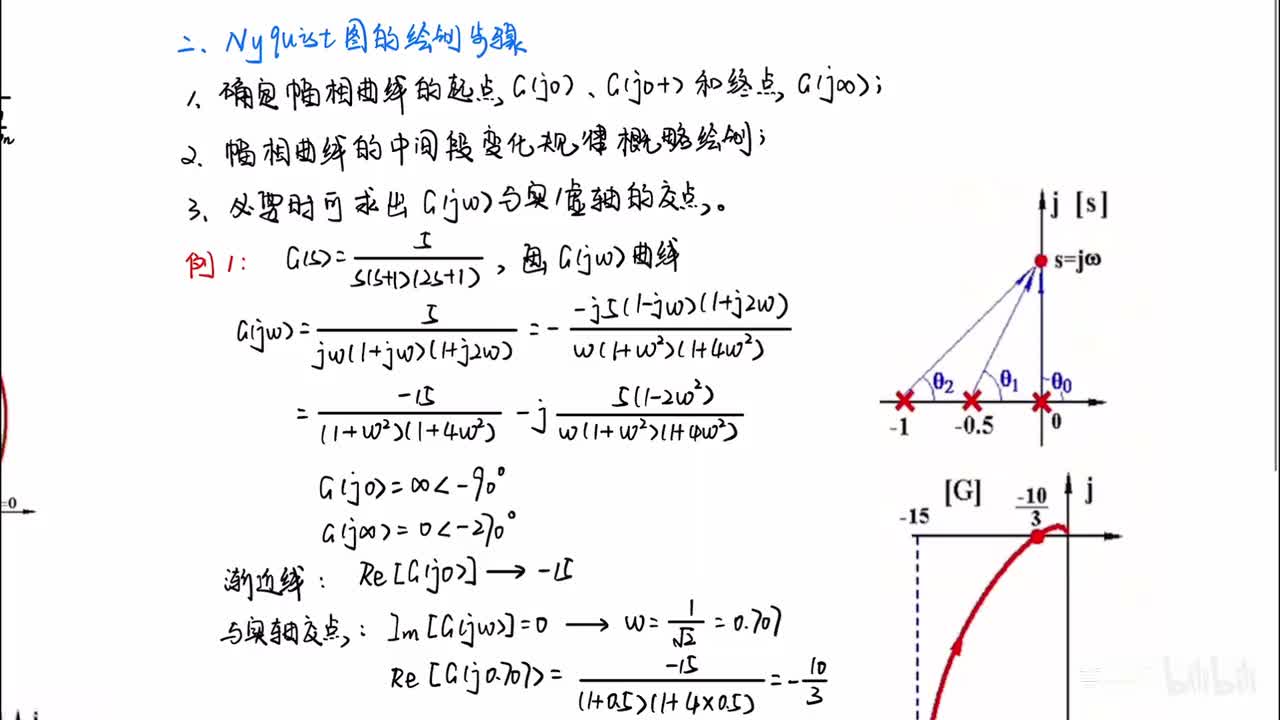 二、Nyquist图的绘制步骤
1、确定幅相曲线的起点G(j0)、G(j0+)和终点G(j∞);
2、幅相曲线的中间段变化规律概略绘制;
3、必要时可求出G(jω)与实/虚轴的交点。
例1: G(s)=5/(s(s+1)(2s+1)), 画G(jω)曲线
G(jω)=5/(jω(1+jω)(1+j2ω))=-(-j5(1-jω)(1+j2ω))/(ω(1+ω²)(1+4ω²))
=-15/((1+ω²)(1+4ω²))-j5(1-2ω²)/(ω(1+ω²)(1+4ω²))
G(j0)=∞<-90°
G(j∞)=0<-270°
渐近线: Re[G(j0)]→-15
与实轴交点: Im[G(jω)]=0→ω=1/√2=0.707
Re[G(j0.707)=-15/((1+0.5)(1+4×0.5))=-10/3
j [s]
s=jω
θ2 θ1 θ0
-1 -0.5 0
[G] j
-15 -10/3
=0
bilibili